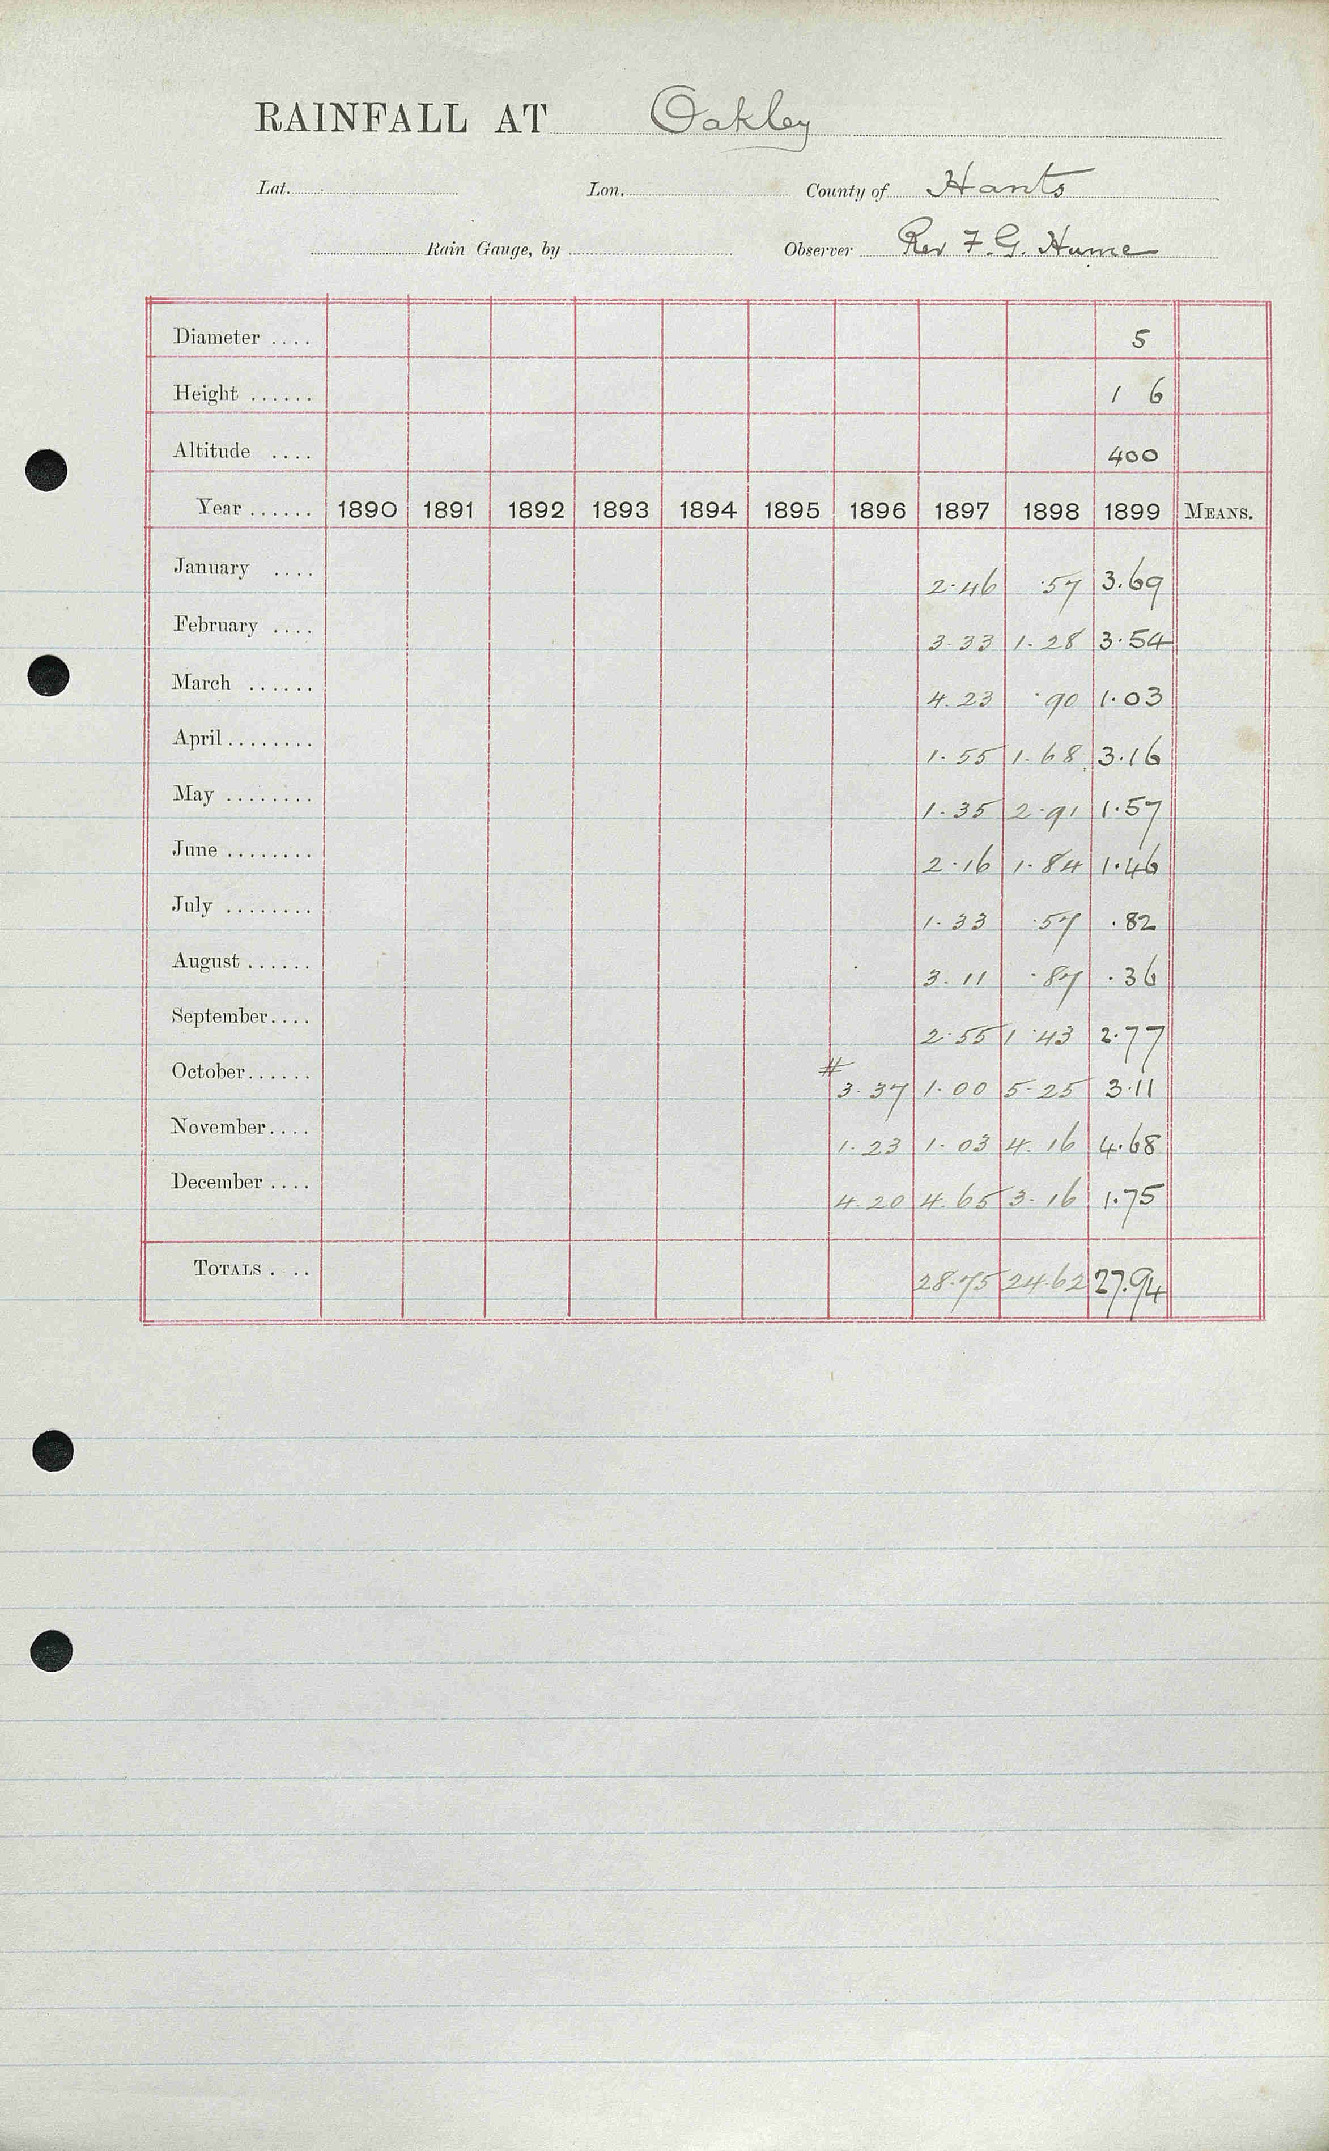 RAINFALL AT Oakley
Lat. Lon. County of Hants
Rain Gauge, by Observer Rev F. G. Hume
Diameter .... 5
Height ...... 1 6
Altitude .... 400
Year ...... 1890 1891 1892 1893 1894 1895 1896 1897 1898 1899 MEANS.
January .... 2.46 .57 3.69
February .... 3.33 1.28 3.54
March ...... 4.23 .90 1.03
April ........ 1.55 1.68 3.16
May ........ 1.35 2.91 1.57
June ........ 2.16 1.84 1.46
July ........ 1.33 .57 .82
August ...... 3.11 .87 .36
September .... 2.55 1.43 2.77
October ...... # 3.37 1.00 5.25 3.11
November .... 1.23 1.03 4.16 4.68
December .... 4.20 4.65 3.16 1.75
TOTALS .... 28.75 24.62 27.94